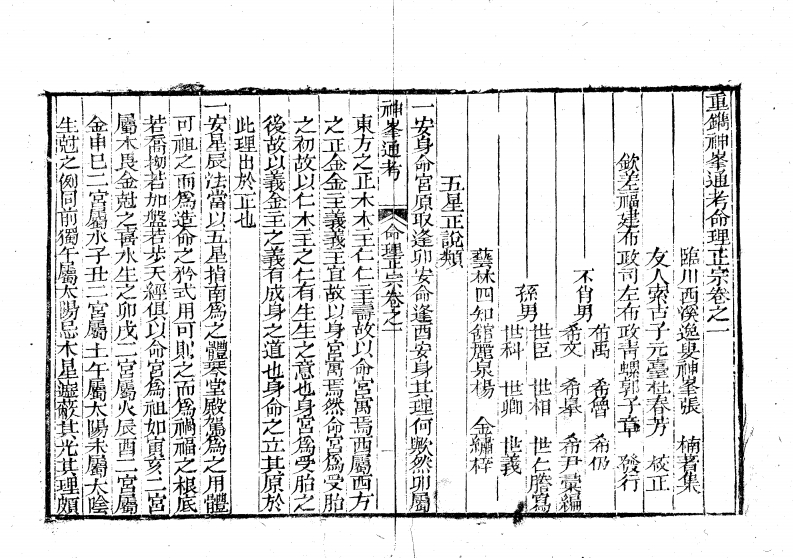 重鐫神峯通考命理正宗卷之一
臨川西溪逸叟神峯張 楠著集
友人索古子元臺杜春芳 校正
欽差福建布政司左布政青螺郭子章 發行
不肖男 希禹 希曾 希仍
希文 希皐 希尹彙編
孫男 世臣 世相 世仁謄寫
世科 世卿 世義
藝林四知館麗泉楊 金繡梓
五星正說類
一安身命宮原取逢卯安命逢酉安身其理何歟然卯屬
東方之正木木主仁仁主壽故以命宮寓焉酉屬西方
之正金金主義義主宜故以身宮寓焉然命宮爲受胎
之初故以仁木主之仁有生生之意也身宮爲受胎之
後故以義金主之義有成身之道也身命之立其原於
此理出於正也
一安星辰法當以五星指南爲之體琹堂殿駕爲之用體
可祖之而爲造命之矜式用可則之而爲禍福之根底
若喬拗若加盤若步天經俱以命宮爲祖如寅亥二宮
屬木畏金尅之喜水生之卯戌二宮屬火辰酉二宮屬
金申巳二宮屬水子丑二宮屬土午屬太陽未屬太陰
生尅之例同前獨午屬太陽忌木星遮蔽其光其理頗
神峯通考
命理正宗卷之一